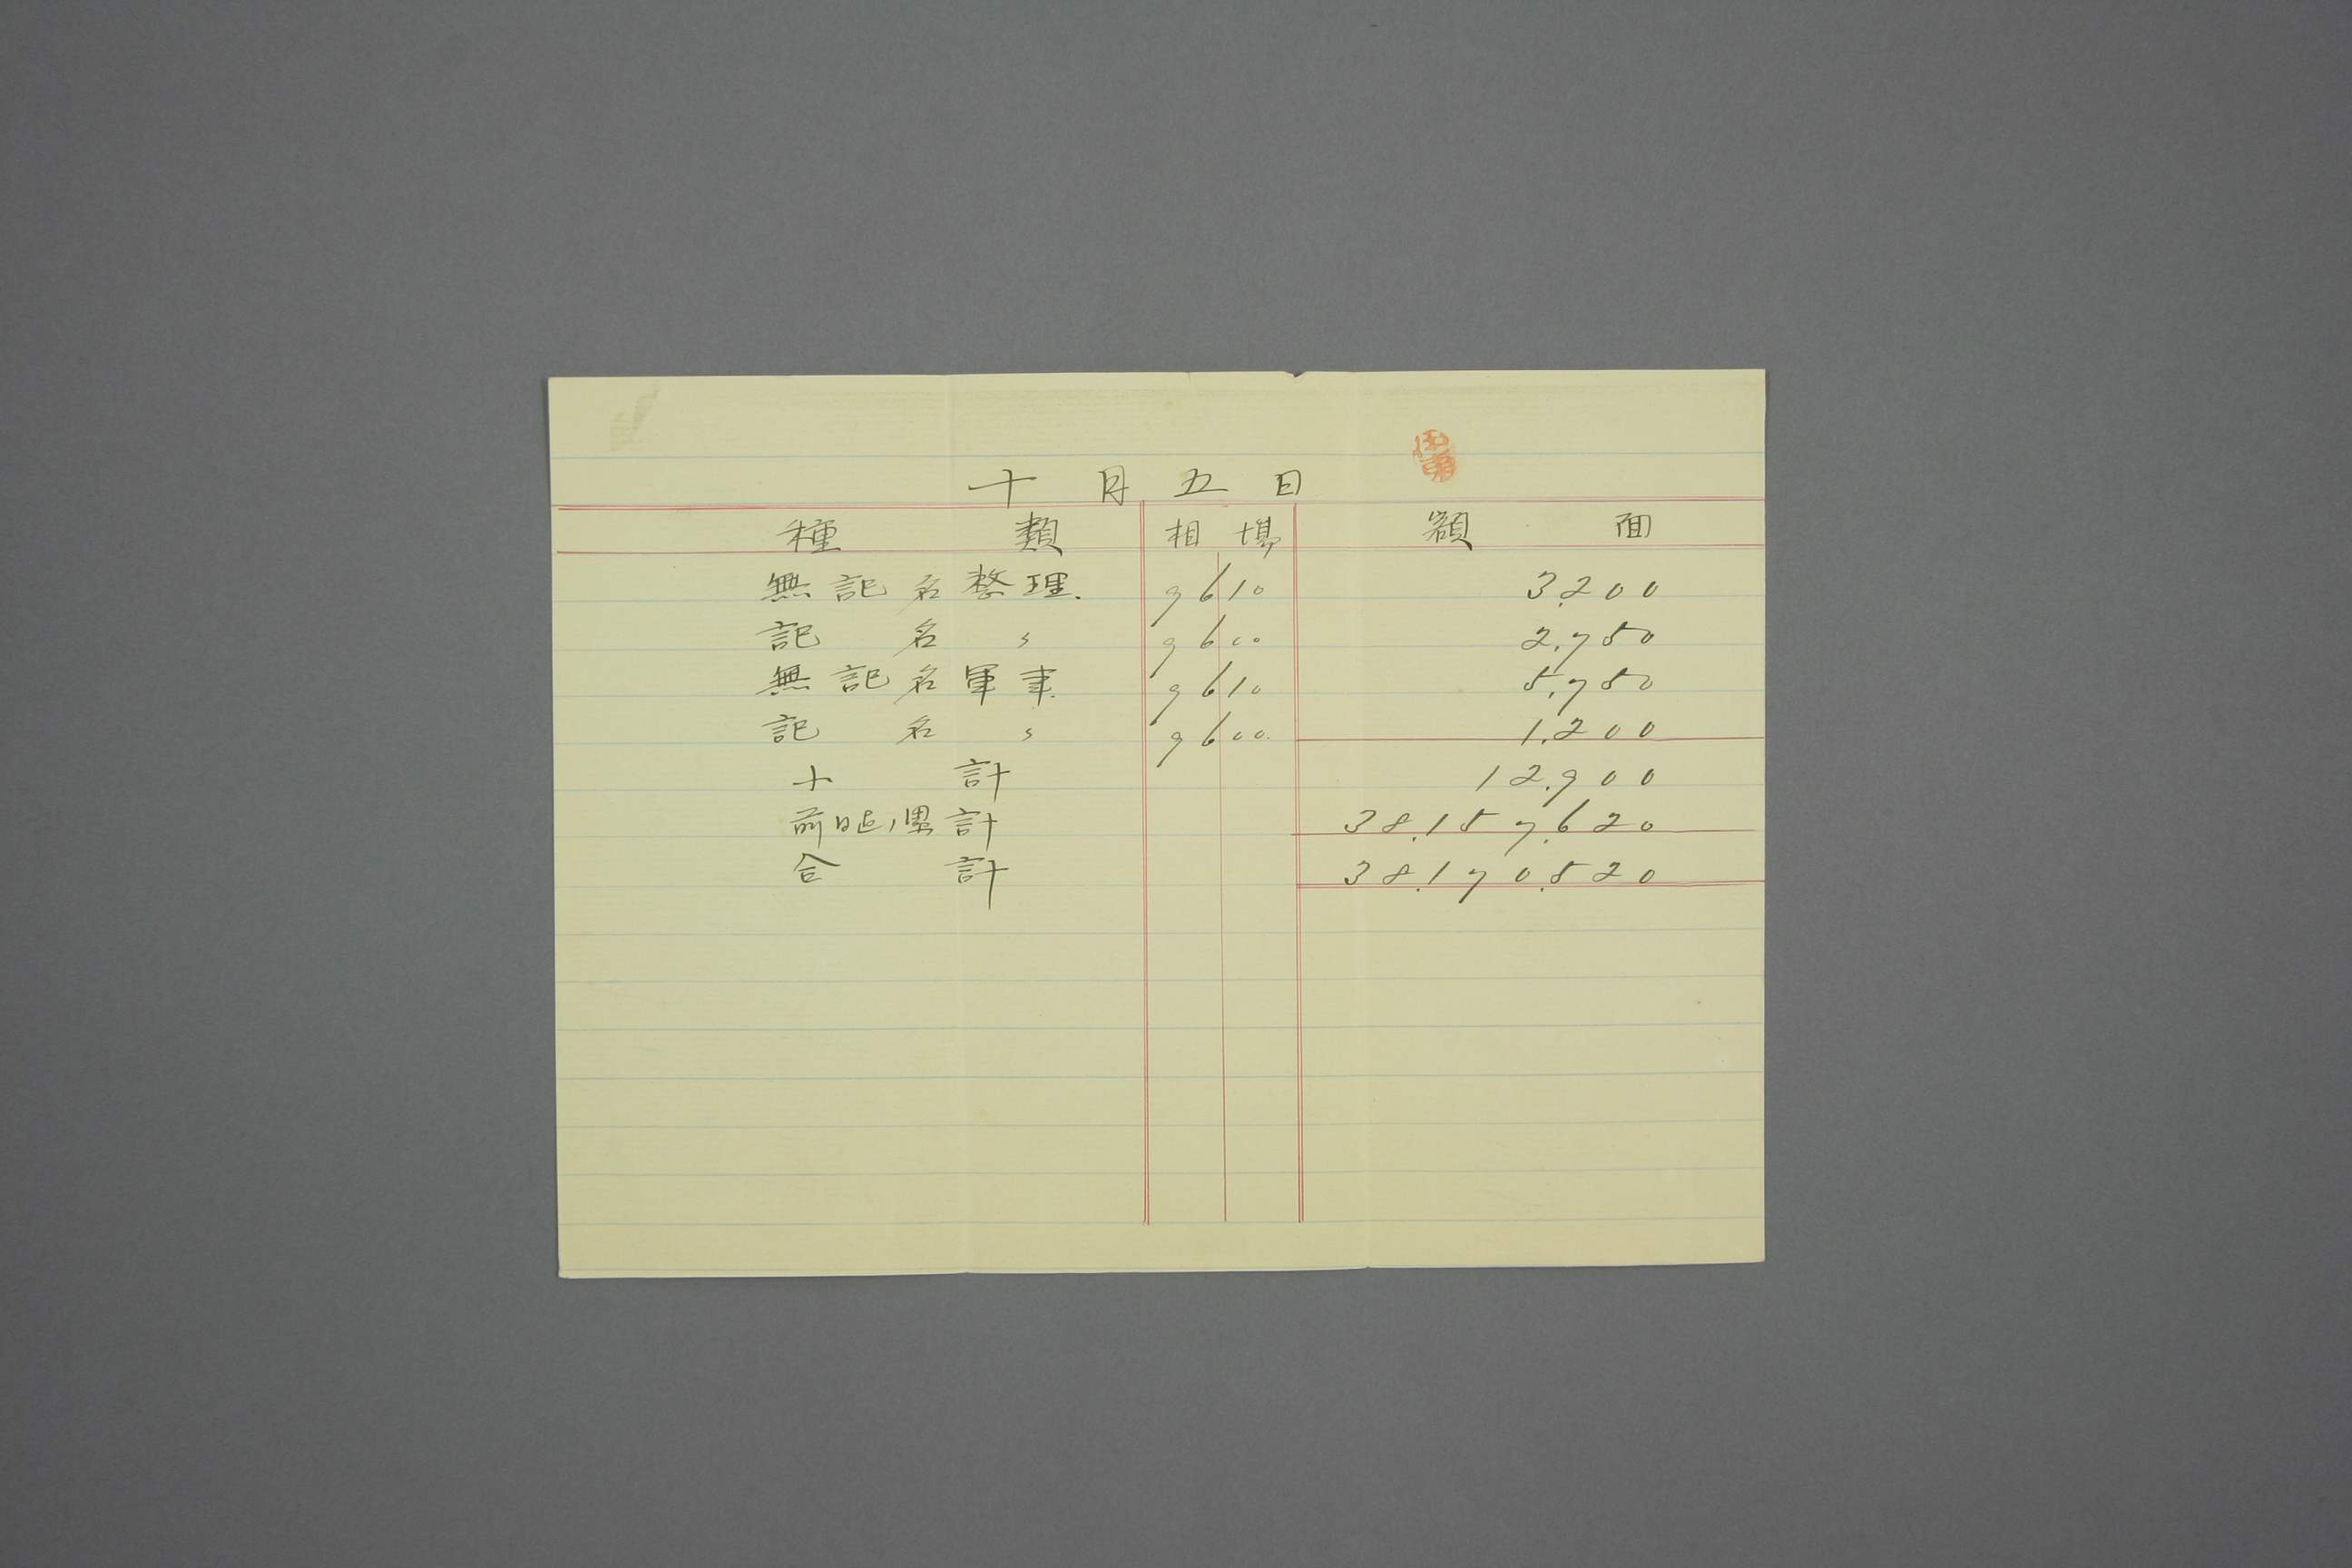 十月五日
種類 相場 額面
無記名整理. 9610 3,200
記名〃 9600 2,750
無記名軍事. 9610 5,750
記名〃 9600. 1,200
小計 12,900
前日迄ノ累計 38,157,620
合計 38,170,520